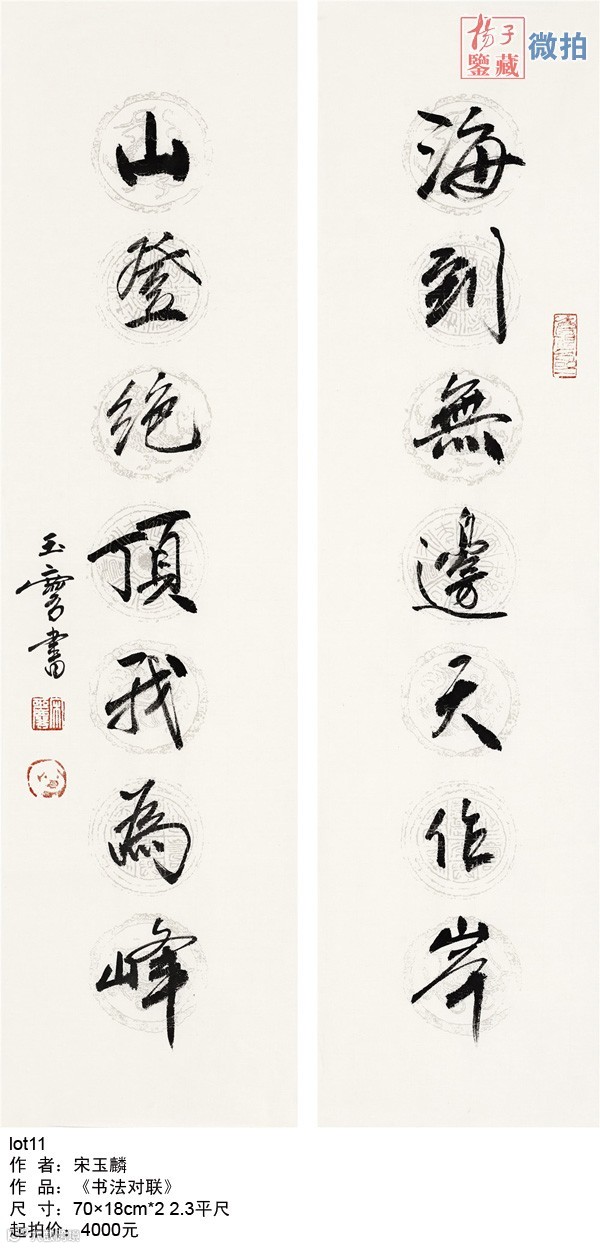 扬子
鑒藏
微拍
海到無邊天作岸
山登絶頂我為峰
玉麐書
lot11
作 者：宋玉麟
作 品：《书法对联》
尺 寸：70×18cm*2 2.3平尺
起拍价：4000元